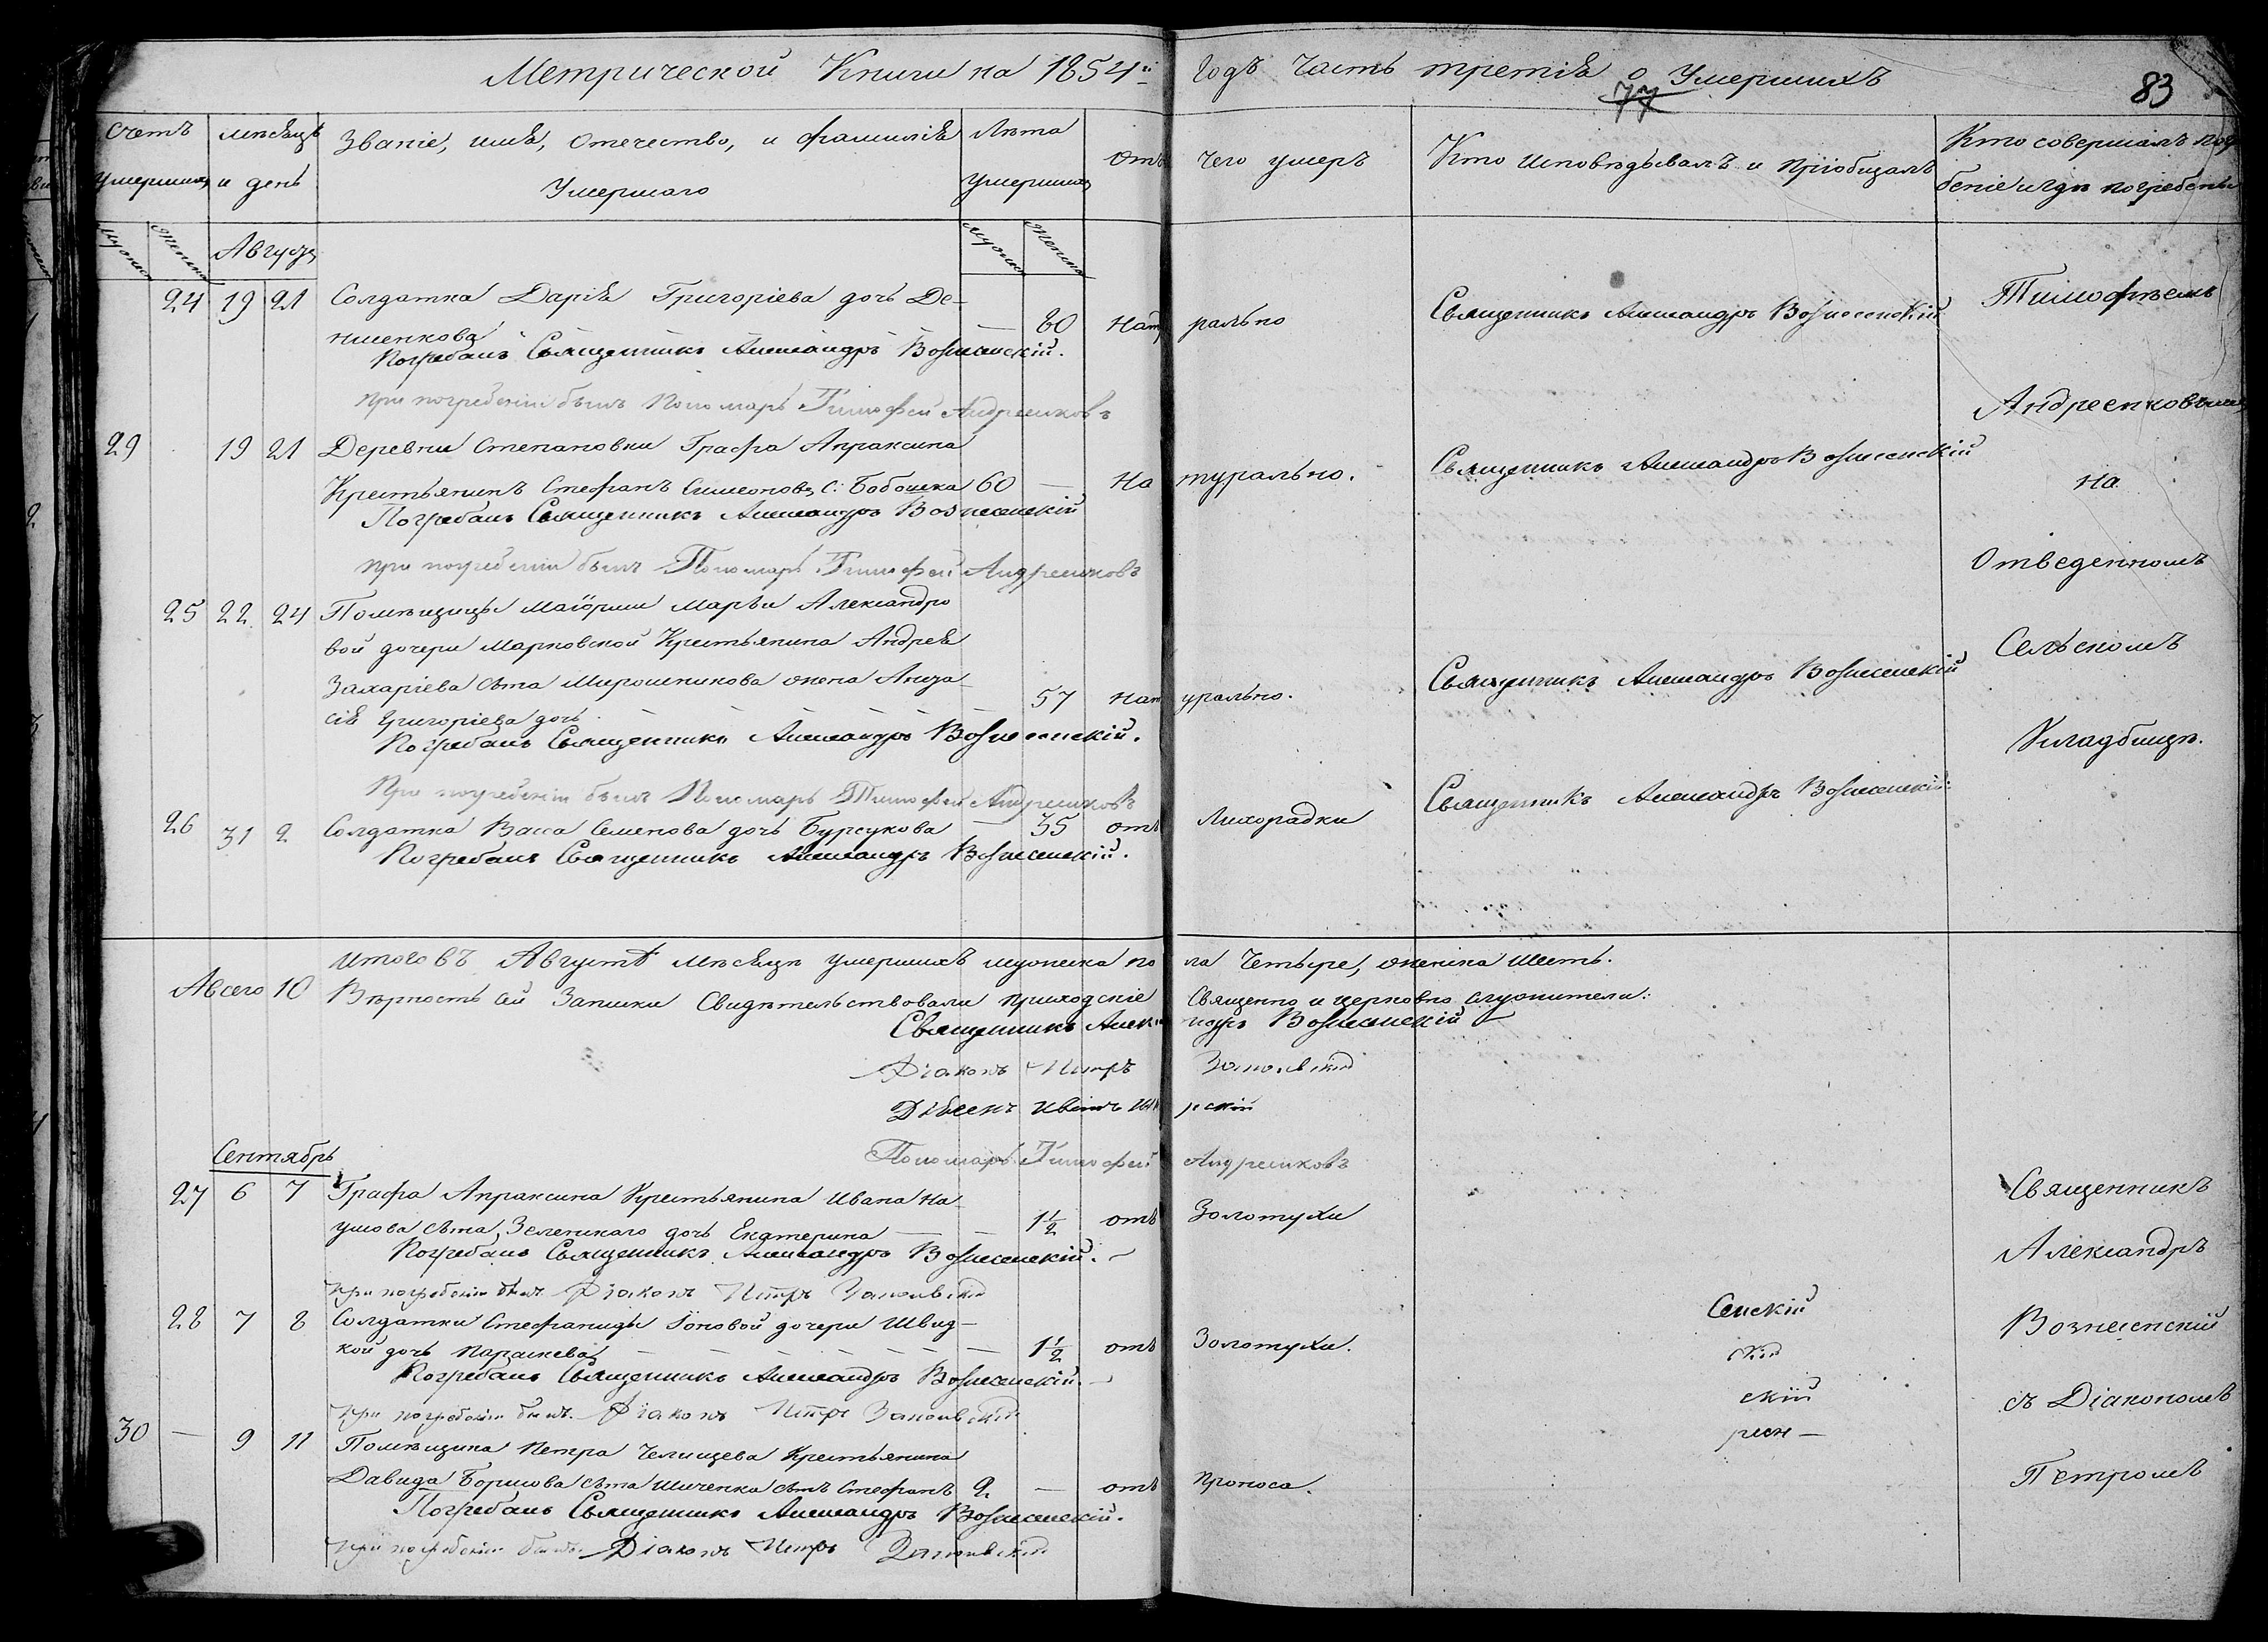 Метрической Книги на 1854й Годъ Часть третія о Умершихъ
77
83
Счетъ умершихъ
мѣсяцъ и день
Званіе, имя, отечество, и фамилія Умершаго
Лѣта умершихъ
Отъ чего умеръ
Кто исповѣдывалъ и пріобщалъ
Кто совершалъ погребеніе и гдѣ погребены
Августъ
24 19 21 Солдатка Дарія Григоріева дочь Де-
нисенкова — 80 Натурально Священникъ Александръ Вознесенскій
Погребалъ Священникъ Александръ Вознесенскій.
при погребеніи былъ Пономарь Тимофей Андреенковъ
29 19 21 Деревни Степановки Графа Апраксина
Крестьянинъ Стефанъ Симеоновъ с: Бобошка 60 — Натурально. Священникъ Александръ Вознесенскій
Погребалъ Священникъ Александръ Вознесенскій
при погребеніи былъ Пономарь Тимофей Андреенковъ
25 22 24 Помѣщицы Маіорши Марьи Александро
вой дочери Марковской Крестьянина Андрея
Захаріева сына Мирошникова жена
сія Григоріева дочь — 57 Натурально. Священникъ Александръ Вознесенскій
Погребалъ Священникъ Александръ Вознесенскій.
При погребеніи былъ Пономарь Тимофей Андреенковъ
26 31 2 Солдатка Васса Семенова дочь Бурсукова — 35 отъ Лихорадки Священникъ Александръ Вознесенскій
Погребалъ Священникъ Александръ Вознесенскій.
Тимофеемъ
Андреенковымъ
на
Отведенномъ
Сельскомъ
Кладбищѣ.
Итого въ Августѣ мѣсяцѣ умершихъ мужеска пола Четыре, женска шесть.
Авсего 10 Вѣрность сей Записки Свидѣтельствовали приходскіе Священно и церковно служители:
Священникъ Александръ Вознесенскій
Діаконъ Петръ
Дьячекъ Иванъ
Пономарь Тимофей Андреенковъ
Сентябрь
27 6 7 Графа Апраксина Крестьянина Ивана На-
умова сына Зеленскаго дочь Екатерина — 1½ отъ Золотухи
Погребалъ Священникъ Александръ Вознесенскій.
При погребеніи былъ Діаконъ Петръ
28 7 8 Солдатки Стефаниды Іоновой дочери Швид-
кой дочь Параскева — 1½ отъ Золотухи.
Погребалъ Священникъ Александръ Вознесенскій.
При погребеніи былъ Діаконъ Петръ
30 — 9 11 Помѣщика Петра Челищева Крестьянина
Давида Борисова сына Шиченка сынъ Стефанъ 2 — отъ Поноса.
Погребалъ Священникъ Александръ Вознесенскій.
При погребеніи былъ Діаконъ Петръ
Сенскій
скій
скій
Священникъ
Александръ
Вознесенскій
съ Діакономъ
Петромъ